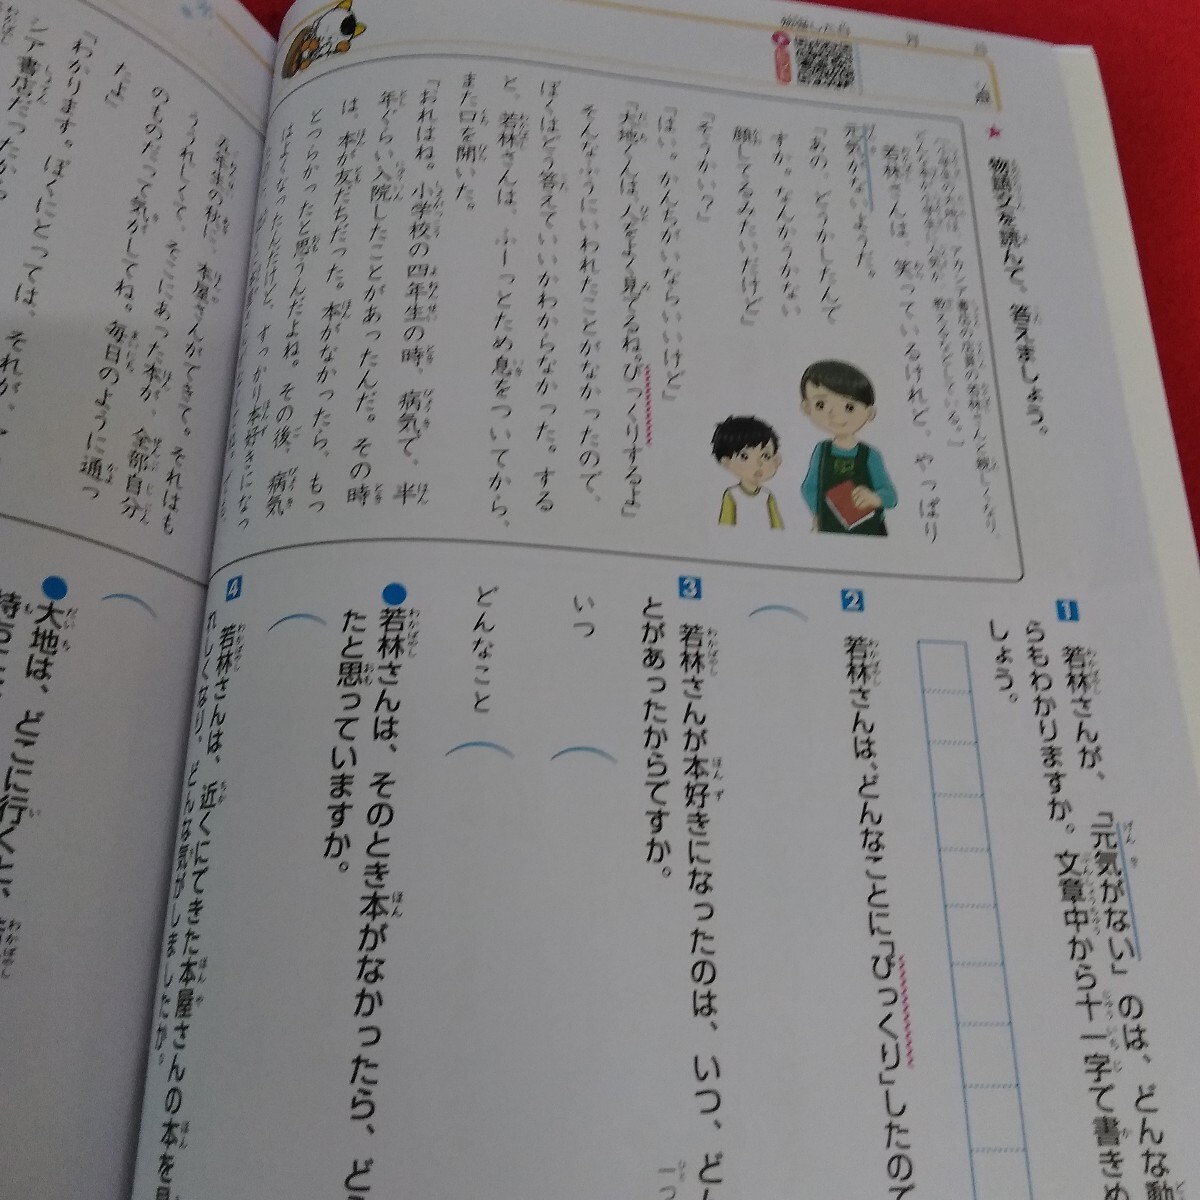 勉強した日
月
日
★物語文を読んで、答えましょう。
若林さんは、笑っているけれど、やっぱり
元気がないようだ。
「あの、どうかしたんで
すか。なんかうかない
顔してるみたいだけど」
「そうかい？」
「はい。かんちがいならいいけど」
「大地くんは、人をよく見てるね。びっくりするよ」
そんなふうにいわれたことがなかったので、
ぼくはどう答えていいかわからなかった。する
と、若林さんは、ふーっとため息をついてから、
また口を開いた。
「おれはね。小学校の四年生の時、病気で、半
年ぐらい入院したことがあったんだ。その時
は、本が友だちだった。本がなかったら、もっ
とつらかったと思うんだよね。その後、病気
はよくなったんだけど、すっかり本好きになっ
六年生の秋に、本屋さんができて。それはも
ううれしくて、そこにあった本が、全部自分
のものだって気がしてね。毎日のように通っ
だよ」
「わかります。ぼくにとっては、それが、
書店だったから。
1 若林さんが、「元気がない」のは、どんな動
らもわかりますか。文章中から十一字で書きぬ
しょう。
2 若林さんは、どんなことに「びっくり」したので
3 若林さんが本好きになったのは、いつ、どん
とがあったからですか。
いつ
どんなこと
●若林さんは、そのとき本がなかったら、ど
たと思っていますか。
4 若林さんは、近くにできた本屋さんの本を見
れしくなり、どんな気がしましたか。
●大地は、どこに行くと、